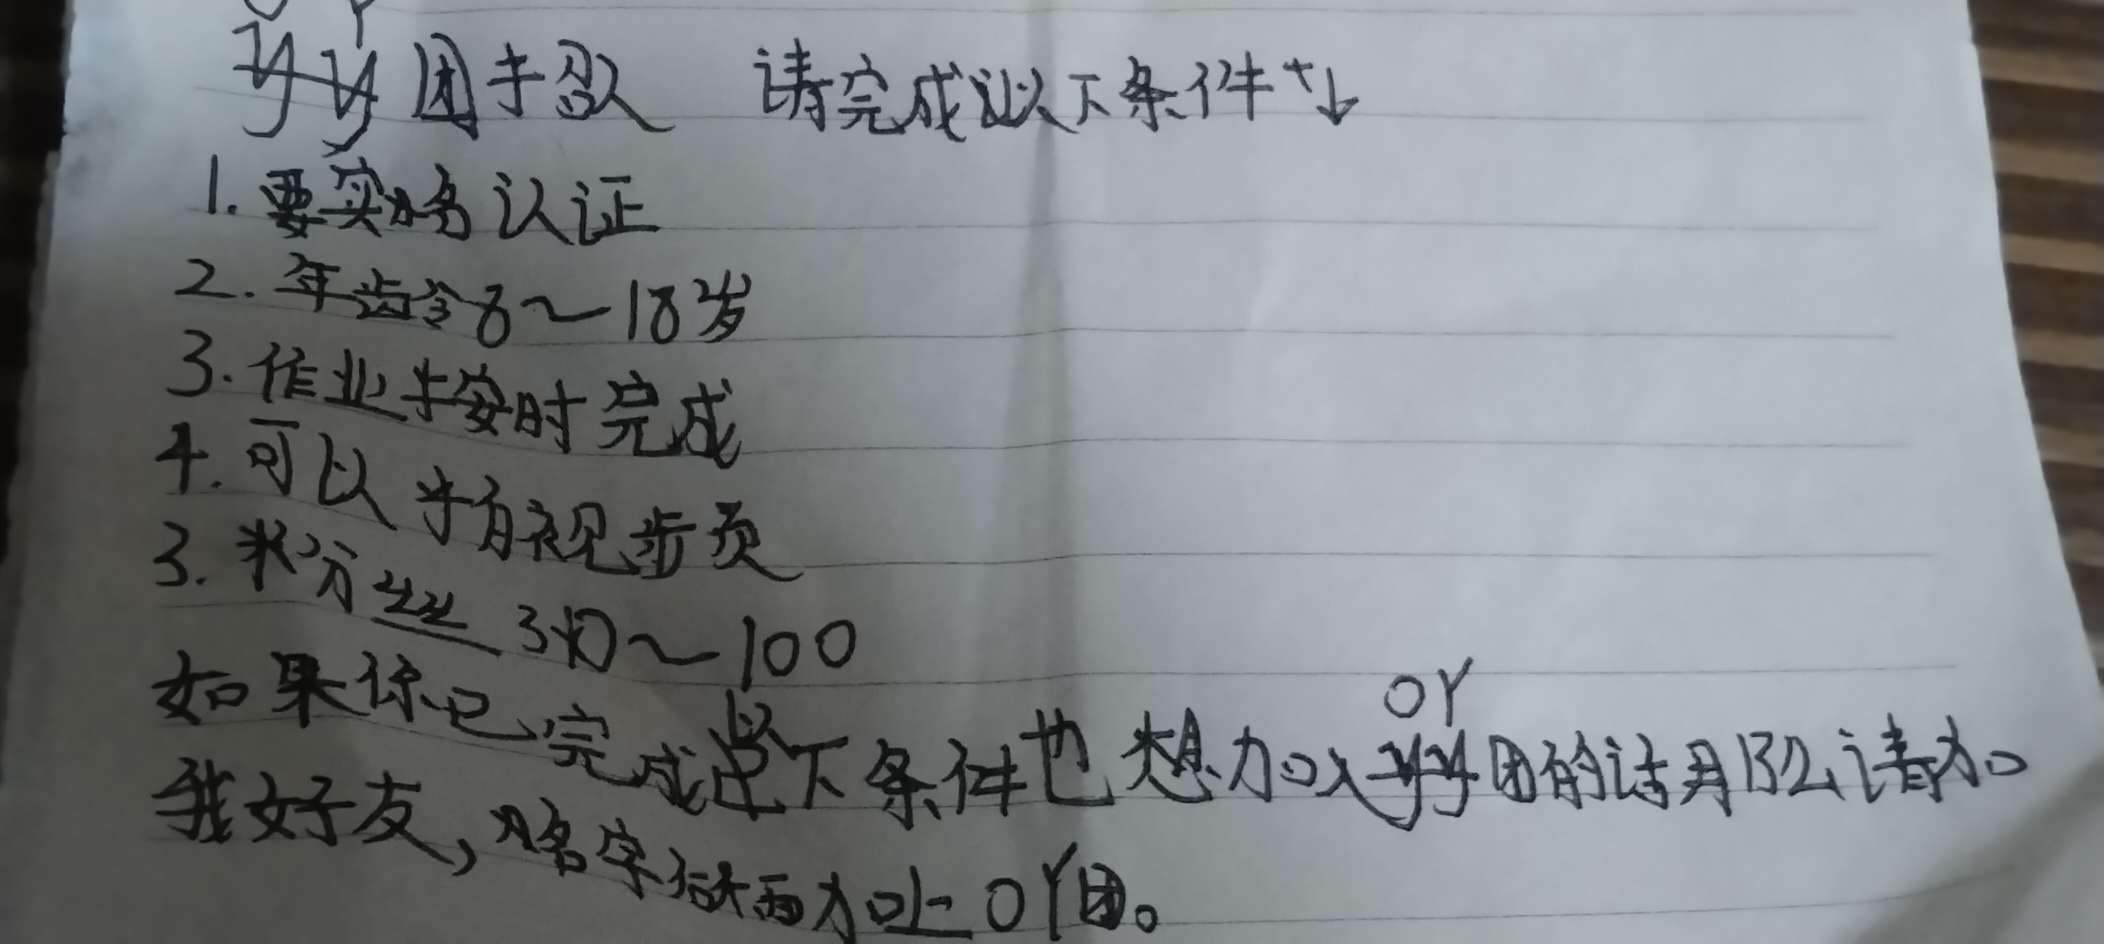 OY
团 请完成以下条件↓
1. 要实名认证
2. 年龄8~18岁
3. 作业按时完成
4. 可以有视步页
3. 积分 30~100
如果你已完成以下条件也想加入OY团的话那么请加
我好友，名字后面加上OY团。